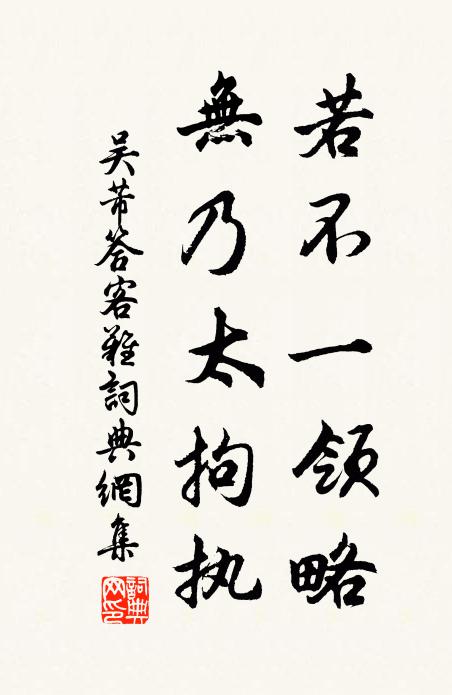 若不一領略
無乃太拘执
吴芾答客難詞典網集
詞典網印